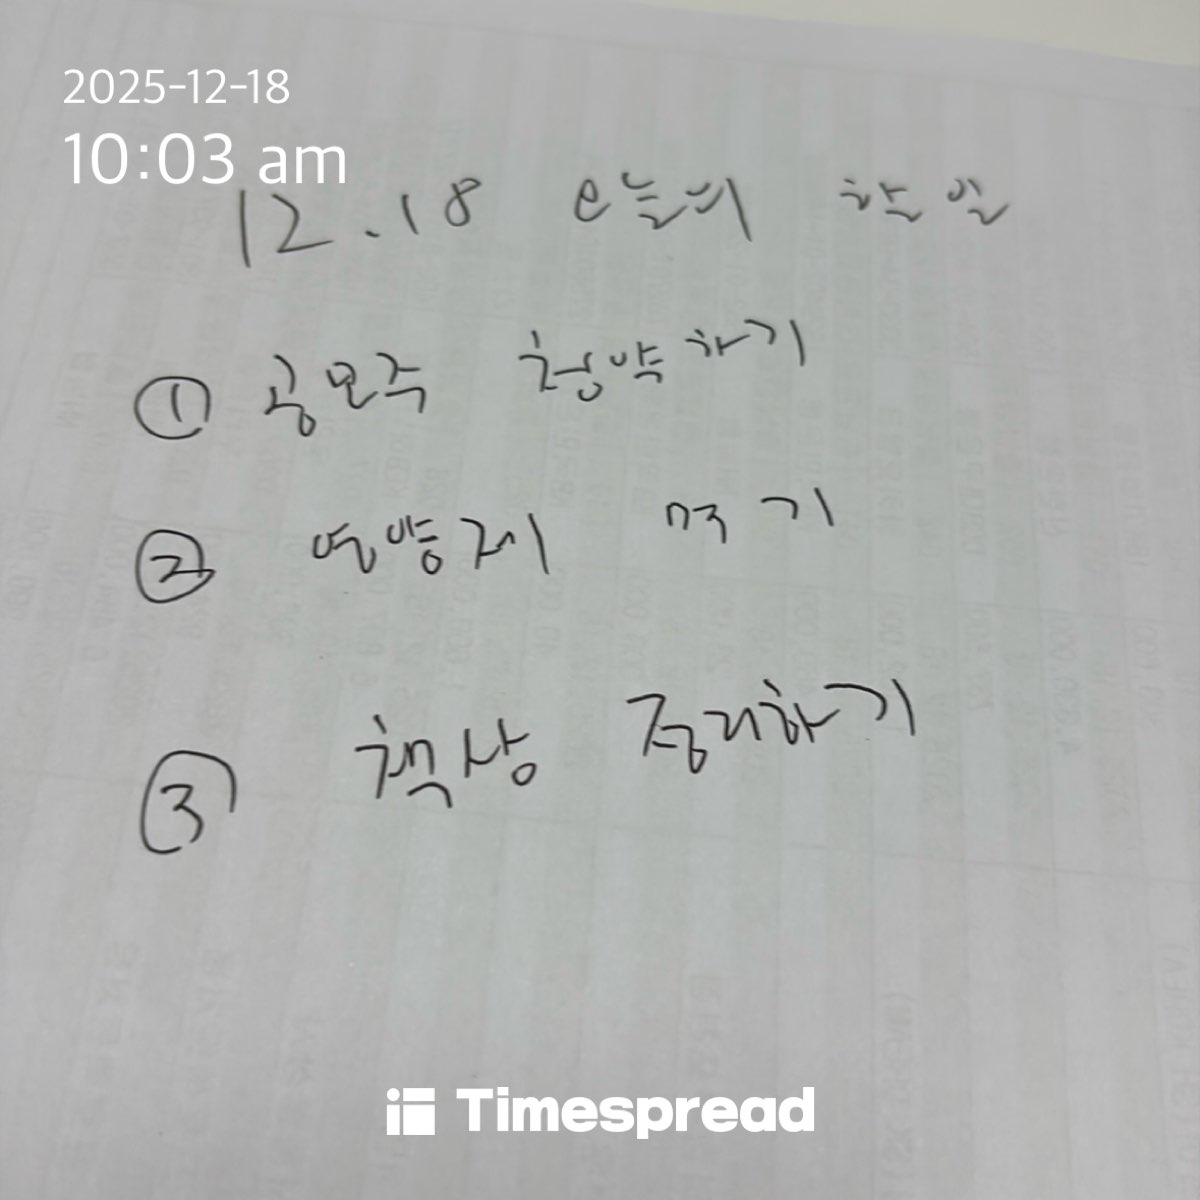 2025-12-18
10:03 am
12.18 오늘의 할일
① 공모주 청약하기
② 영양제 먹기
③ 책상 정리하기
Timespread